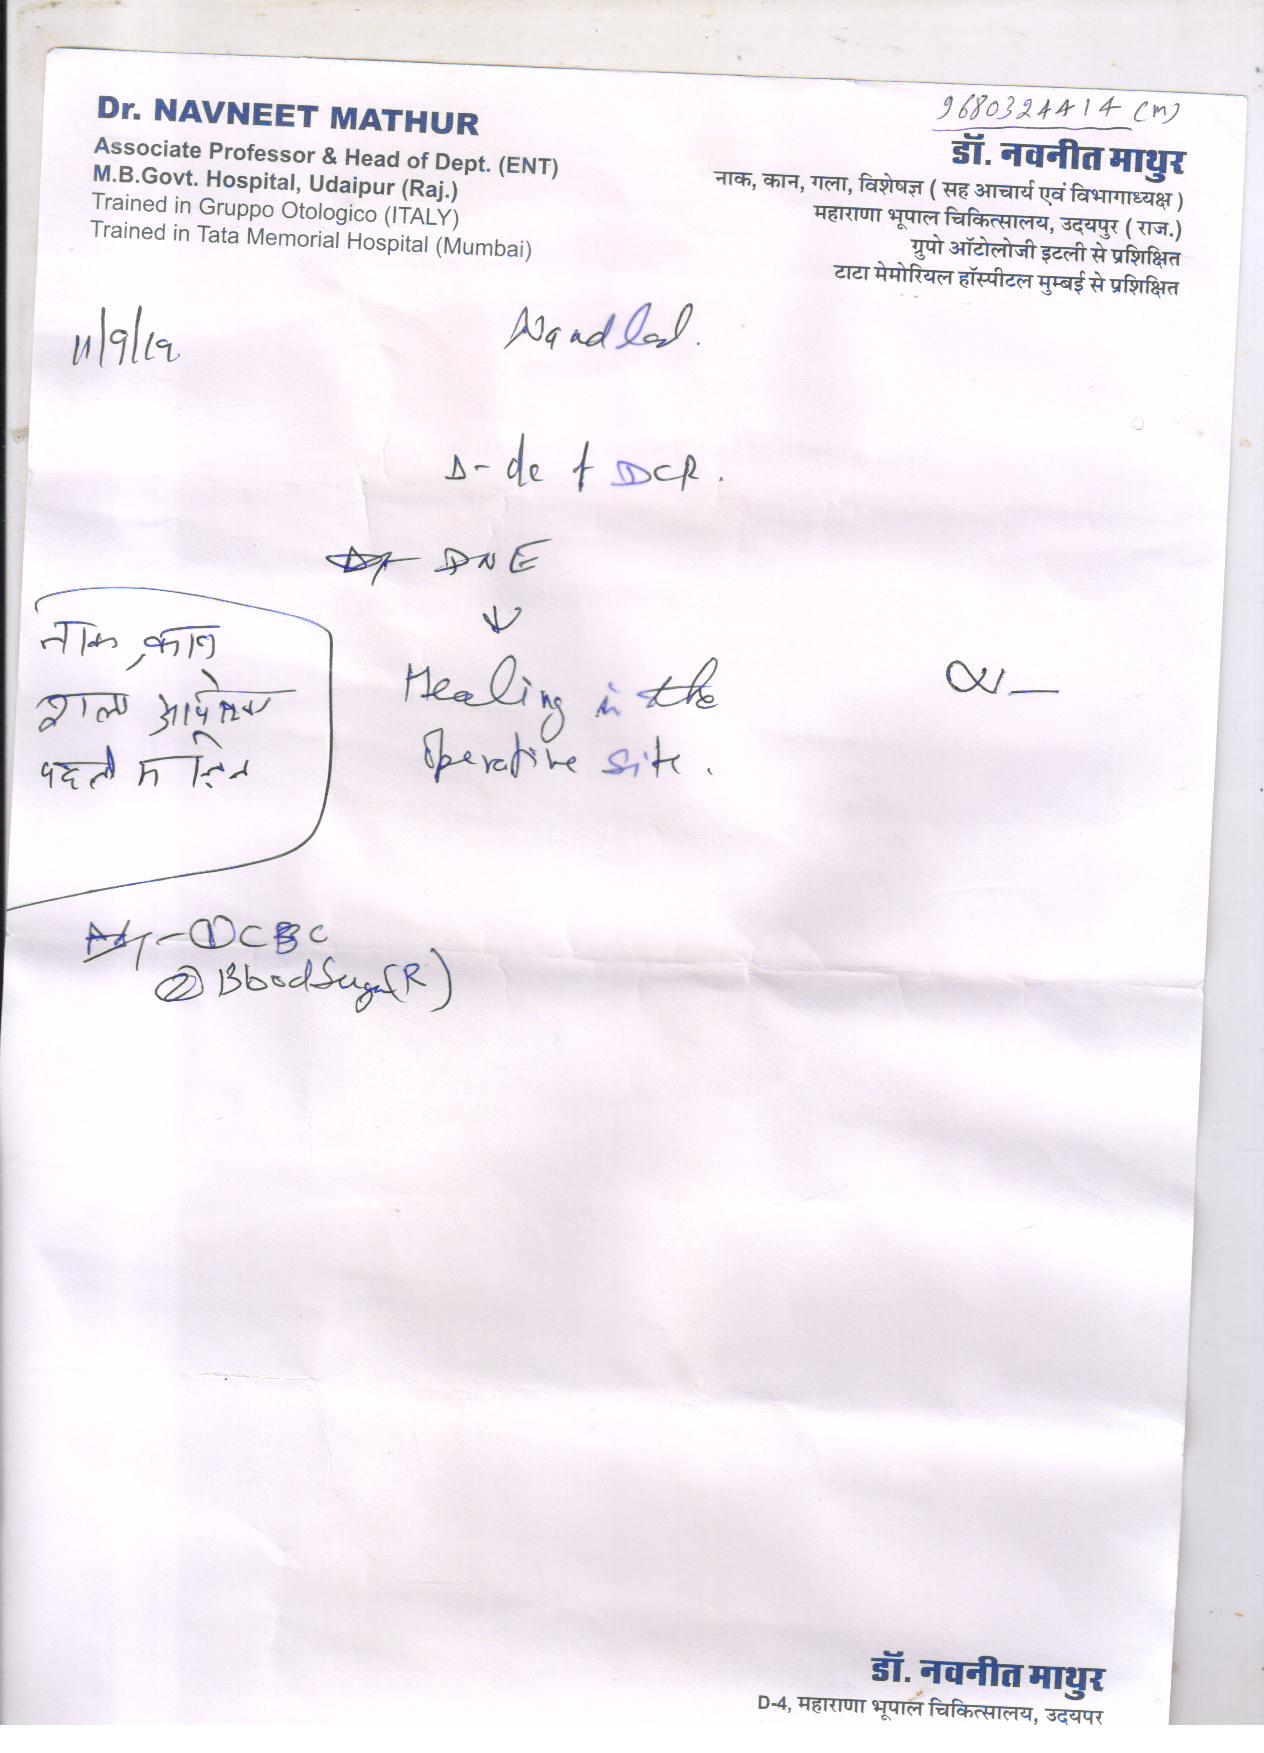 Dr. NAVNEET MATHUR
Associate Professor & Head of Dept. (ENT)
M.B.Govt. Hospital, Udaipur (Raj.)
Trained in Gruppo Otologico (ITALY)
Trained in Tata Memorial Hospital (Mumbai)
9680324414 (m)
डॉ. नवनीत माथुर
नाक, कान, गला, विशेषज्ञ ( सह आचार्य एवं विभागाध्यक्ष )
महाराणा भूपाल चिकित्सालय, उदयपुर ( राज.)
ग्रुपो ऑटोलोजी इटली से प्रशिक्षित
टाटा मेमोरियल हॉस्पीटल मुम्बई से प्रशिक्षित
11/9/19
Nandlal.
DCR.
DNE
↓
Healing in the
Operative site.
नाक, कान
गला
पहली
① CBC
② Blood Sugar (R)
डॉ. नवनीत माथुर
D-4, महाराणा भूपाल चिकित्सालय, उदयपर